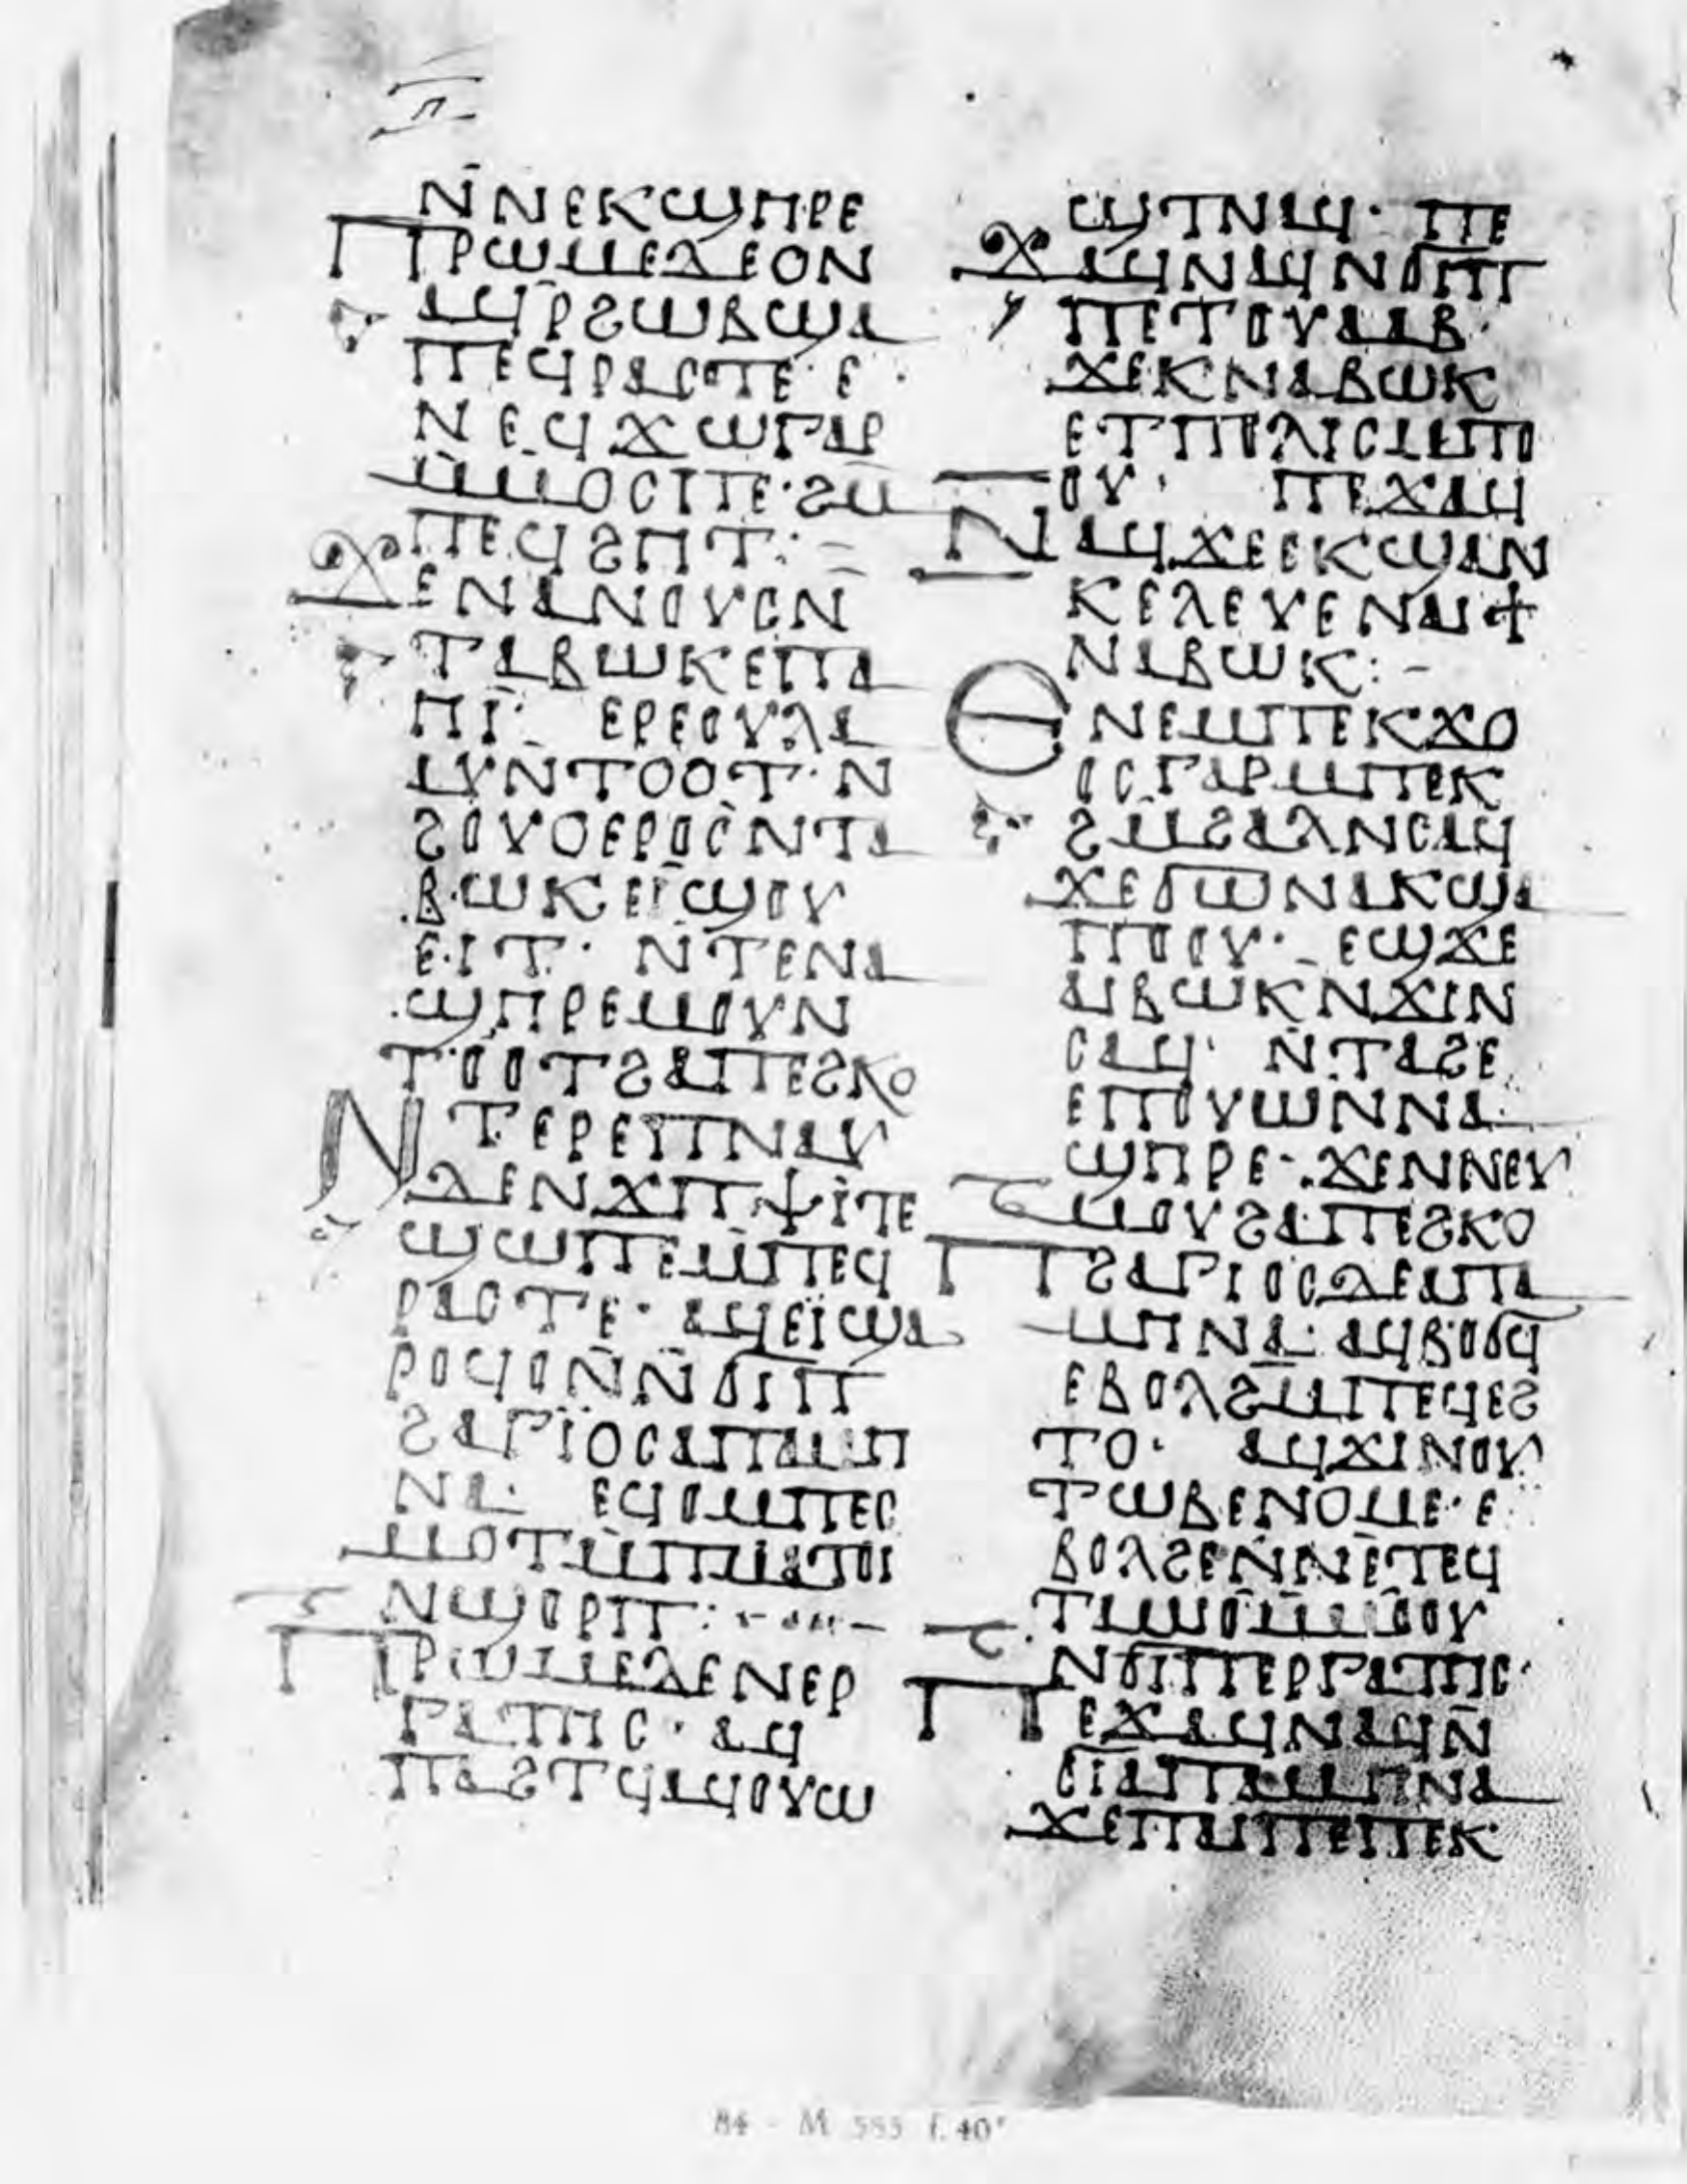 ⲡ
ⲛ̄ⲛⲉⲕϣⲏⲣⲉ
ⲡⲣⲱⲙⲉⲇⲉⲟⲛ
ⲁϥⲣϩⲱⲃϣⲁ
ⲡⲉϥⲣⲁⲥⲧⲉ· ⲉ
ⲛⲉϥϫⲱⲅⲁⲣ
ⲙ̄ⲙⲟⲥⲡⲉ· ϩⲙ̄
ⲡⲉϥϩⲏⲧ:
ϫⲉⲛⲁⲛⲟⲩⲟⲛ
ⲧⲁⲃⲱⲕⲉⲡⲁ
ⲏⲓ̈· ⲉⲣⲉⲟⲩⲗⲁ
ⲁⲩⲛⲧⲟⲟⲧ· ⲛ
ϩⲟⲩⲟⲉⲣⲟⲥⲛⲧⲁ
ⲃⲱⲕⲉⲓ̈ϣⲟⲩ
ⲉⲓⲧ· ⲛ̄ⲧⲉⲛⲁ
ϣⲏⲣⲉⲙⲟⲩⲛ
ⲧⲟⲟⲧϩⲁⲡⲉϩⲕⲟ
ⲛⲧⲉⲣⲉⲡⲛⲁⲩ
ⲇⲉⲛϫⲡⲯⲓⲧⲉ
ϣⲱⲡⲉⲙ̄ⲡⲉϥ
ⲣⲁⲥⲧⲉ· ⲁϥⲉⲓ̈ϣⲁ
ⲣⲟϥⲟⲛⲛ̄ϭⲓⲡ
ϩⲁⲅⲓ̈ⲟⲥⲁⲡⲁⲙⲏ
ⲛⲁ· ⲉϥⲟⲙⲡⲉⲥ
ⲙⲟⲧⲙ̄ⲡⲙⲁⲧⲟⲓ
ⲛϣⲟⲣⲡ:
ⲡⲣⲱⲙⲉⲇⲉⲛⲉⲣ
ⲅⲁⲧⲏⲥ· ⲁϥ
ⲡⲁϩⲧϥⲁϥⲟⲩⲱ
ϣⲧⲛⲁϥ· ⲡⲉ
ϫⲁϥⲛⲁϥⲛϭⲓⲡ
ⲡⲉⲧⲟⲩⲁⲁⲃ·
ϫⲉⲕⲛⲁⲃⲱⲕ
ⲉⲧⲡⲟⲗⲓⲥⲙ̄ⲡⲟ
ⲟⲩ· ⲡⲉϫⲁϥ
ⲛⲁϥϫⲉⲉⲕϣⲁⲛ
ⲕⲉⲗⲉⲩⲉⲛⲁⲓϯ
ⲛⲁⲃⲱⲕ:
ⲉⲛⲉⲙⲡⲉⲕϫⲟ
ⲟⲥⲅⲁⲣⲙⲡⲉⲕ
ϩⲙ̄ϩⲁⲗⲛⲥⲁϥ
ϫⲉϭⲱⲛⲁⲕϣⲁ
ⲡⲟⲟⲩ· ⲉϣϫⲉ
ⲁⲓⲃⲱⲕⲛϫⲓⲛ
ⲥⲁϥ· ⲛ̄ⲧⲁϩⲉ
ⲉⲡⲟⲩⲱⲛⲛⲁ
ϣⲏⲣⲉ· ϫⲉⲛⲛⲉⲩ
ⲙⲟⲩϩⲁⲡⲉϩⲕⲟ
ⲡϩⲁⲅⲓⲟⲥⲇⲉⲁⲡⲁ
ⲙⲏⲛⲁ· ⲁϥⲃⲟϭϥ
ⲉⲃⲟⲗϩⲙ̄ⲡⲉϥⲉϩ
ⲧⲟ· ⲁϥϫⲓⲛⲟⲩ
ⲧⲱⲃⲉⲛⲟⲙⲉ· ⲉ
ⲃⲟⲗϩⲉⲛⲛⲉⲧⲉϥ
ⲧⲁⲙⲟⲙ̄ⲙⲟⲟⲩ
ⲛϭⲓⲡⲉⲣⲅⲁⲧⲏⲥ·
ⲡⲉϫⲁϥⲛⲁϥⲛ̄
ϭⲓⲁⲡⲁⲙⲏⲛⲁ
ϫⲉⲡⲁⲓⲡⲉⲡⲉⲕ
84 - M 585 f. 40ᵛ